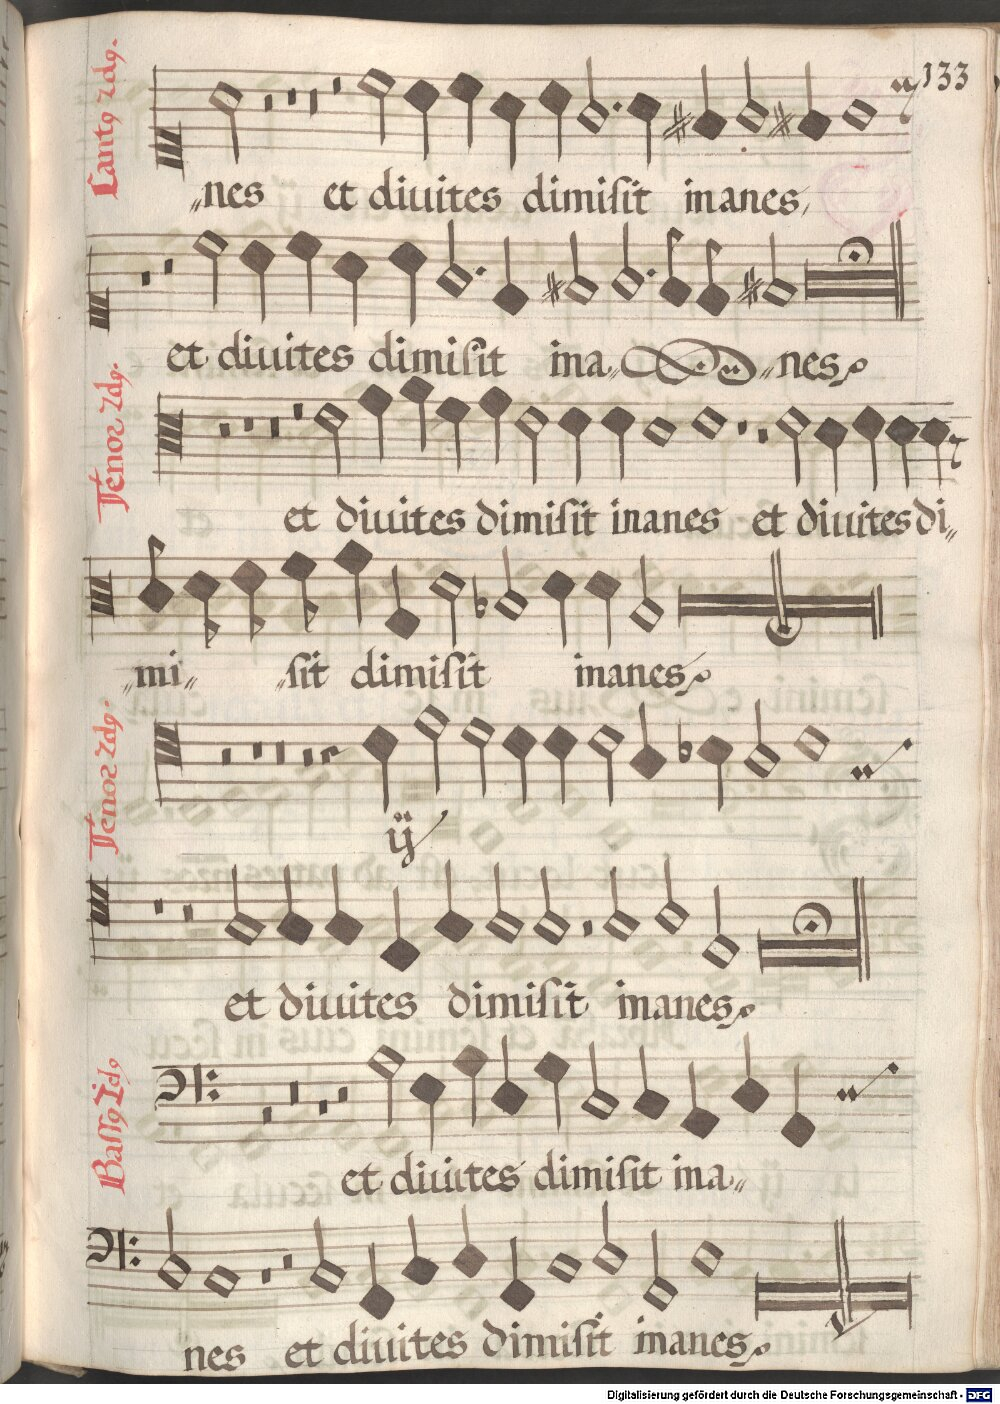 133
Cantꝰ 2dꝰ.
nes et diuites dimisit inanes
et diuites dimisit ina nes
Tenor 2dꝰ.
et diuites dimisit inanes et diuites di
mi sit dimisit inanes
Tenor 2dꝰ.
ij
et diuites dimisit inanes
Bassꝰ Idꝰ
et diuites dimisit ina
nes et diuites dimisit inanes
Digitalisierung gefördert durch die Deutsche Forschungsgemeinschaft - DFG